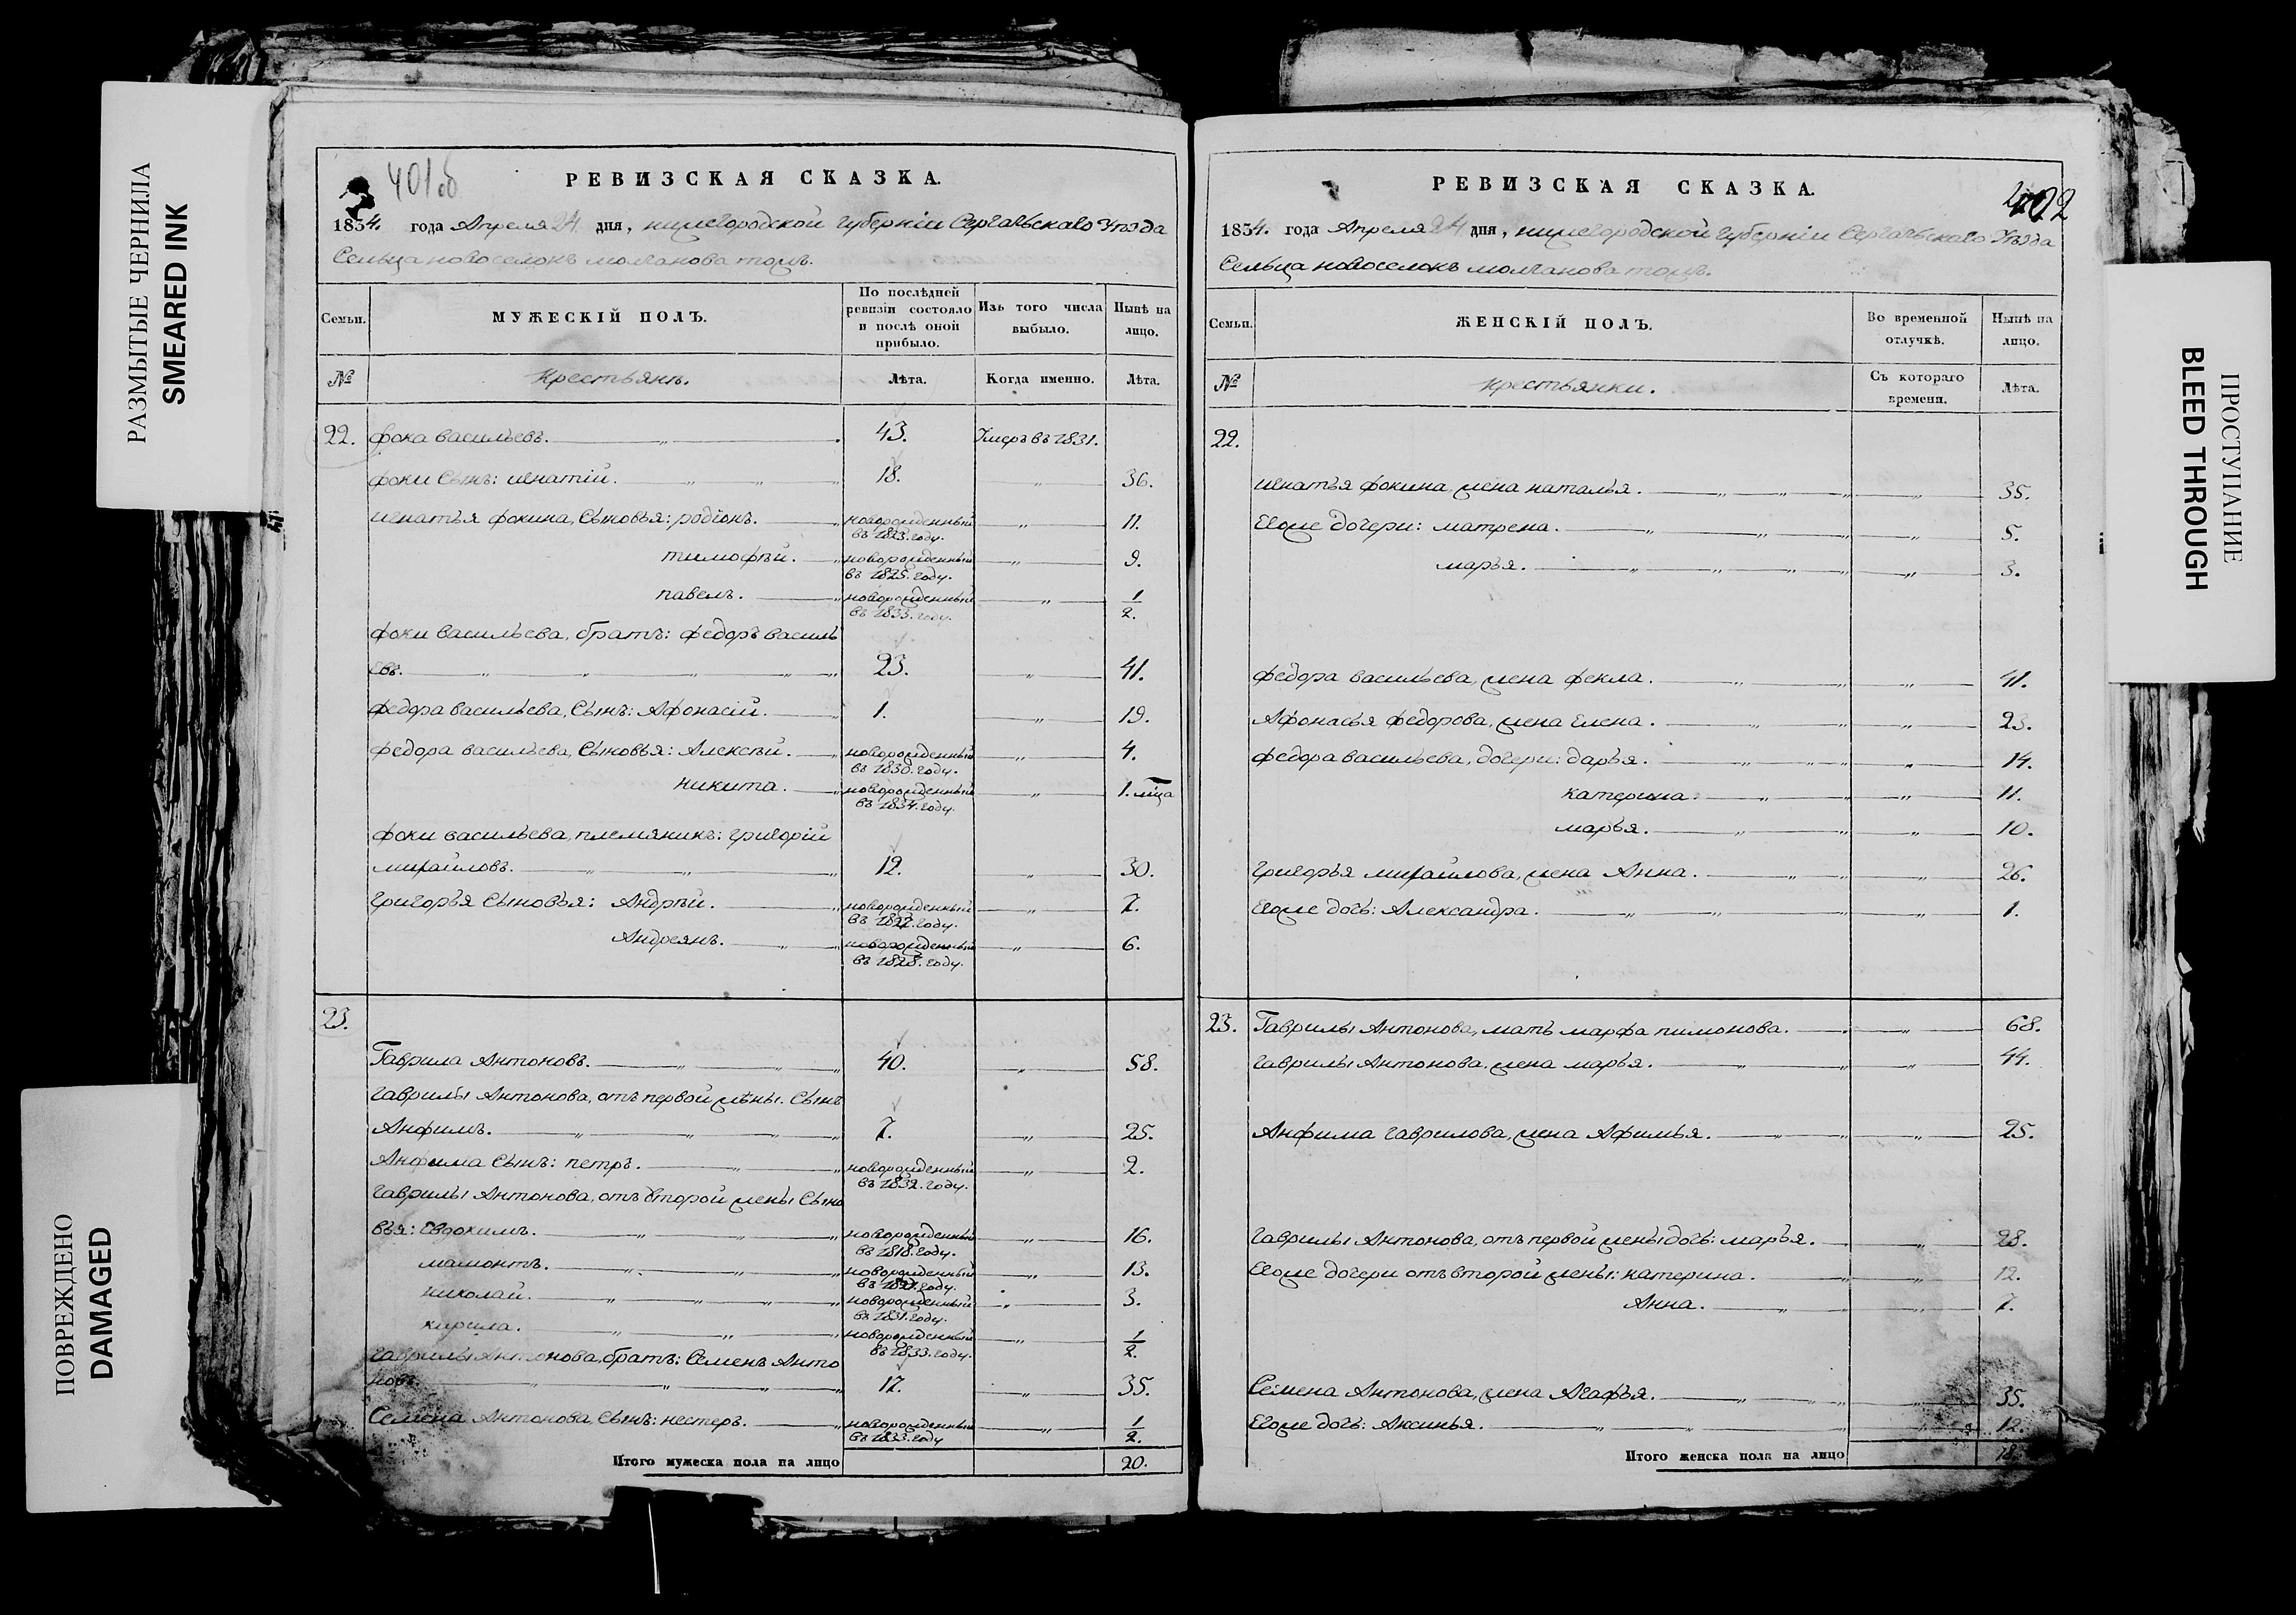 РАЗМЫТЫЕ ЧЕРНИЛА
SMEARED INK
ПОВРЕЖДЕНО
DAMAGED
401 об
РЕВИЗСКАЯ СКАЗКА.
1834. года Апреля 24 дня, нижегородской губерніи Сергачьскаго Уѣзда
Сельца новоселокъ молчанова тожъ.
Семьи.
МУЖЕСКІЙ ПОЛЪ.
По послѣдней ревизіи состояло и послѣ оной прибыло.
Изъ того числа выбыло.
Нынѣ на лицо.
№ Крестьянъ. Лѣта. Когда именно. Лѣта.
22. фока васильевъ. 43. Умеръ въ 1831.
фоки Сынъ: игнатій. 18. 36.
игнатья фокина, Сыновья: родіонъ. новорожденный въ 1823. году. 11.
тимофѣй. новорожденный въ 1825. году. 9.
павелъ. новорожденный въ 1833. году. 1/2.
фоки васильева, братъ: федоръ василь
евъ. 23. 41.
федора васильева, Сынъ: Афонасій. 1. 19.
федора васильева, Сыновья: Алексѣй. новорожденный въ 1830. году. 4.
никита. новорожденный въ 1834. году. 1. мца
фоки васильева, племяникъ: григорій
михайловъ. 12. 30.
григорья Сыновья: Андрѣй. новорожденный въ 1827. году. 7.
Андреянъ. новорожденный въ 1828. году. 6.
23.
Гаврила Антоновъ. 40. 58.
гаврилы Антонова, отъ первой жѣны. Сынъ
Анфимъ. 7. 25.
Анфима Сынъ: петръ. новорожденный въ 1832. году. 2.
гаврилы Антонова, отъ второй жены Сыно
вья: Евдокимъ. новорожденный въ 1818. году. 16.
мамонтъ. новорожденный въ 1821. году. 13.
николай. новорожденный въ 1831. году. 3.
кирила. новорожденный въ 1833. году. 1/2.
гаврилы Антонова, братъ: Семенъ Анто
новъ. 17. 35.
Семена Антонова, Сынъ: нестеръ. новорожденный въ 1833. году 1/2.
Итого мужеска пола на лицо 20.
402
РЕВИЗСКАЯ СКАЗКА.
1834. года Апреля 24 дня, нижегородской губерніи Сергачьскаго Уѣзда
Сельца новоселокъ молчанова тожъ.
Семьи.
ЖЕНСКІЙ ПОЛЪ.
Во временной отлучкѣ.
Нынѣ на лицо.
№ крестьянки. Съ котораго времени. Лѣта.
22.
игнатья фокина, жена наталья. 35.
Егоже дочери: матрена. 5.
марья. 3.
федора васильева, жена фекла. 41.
Афонасья федорова, жена Елена. 23.
федора васильева, дочери: дарья. 14.
катерина. 11.
марья. 10.
григорья михайлова, жена Анна. 26.
Егоже дочь: Александра. 1.
23. Гаврилы Антонова, мать марфа пимонова. 68.
гаврилы Антонова, жена марья. 44.
Анфима гаврилова, жена Афимья. 25.
гаврилы Антонова, отъ первой жены дочь: марья. 28.
Егоже дочери отъ второй жены: катерина. 12.
Анна. 7.
Семена Антонова, жена Агафья. 35.
Егоже дочь: Аксинья. 12.
Итого женска пола на лицо 18.
ПРОСТУПАНИЕ
BLEED THROUGH